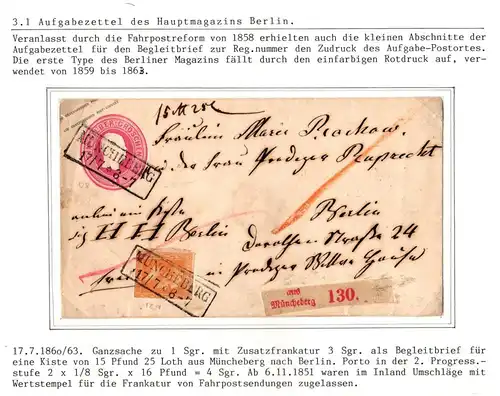 3.1 Aufgabezettel des Hauptmagazins Berlin.
Veranlasst durch die Fahrpostreform von 1858 erhielten auch die kleinen Abschnitte der
Aufgabezettel für den Begleitbrief zur Reg.nummer den Zudruck des Aufgabe-Postortes.
Die erste Type des Berliner Magazins fällt durch den einfarbigen Rotdruck auf, ver-
wendet von 1859 bis 1863.
Fräulein Marie Prochow
bei der Frau Prediger Ruprecht
MÜNCHEBERG
17/7 * 6-7
Berlin
H H H Berlin
Dorotheen Straße 24
MÜNCHEBERG
17/7 * 6-7
Prediger Wittwe
aus
Müncheberg 130.
17.7.186o/63. Ganzsache zu 1 Sgr. mit Zusatzfrankatur 3 Sgr. als Begleitbrief für
eine Kiste von 15 Pfund 25 Loth aus Müncheberg nach Berlin. Porto in der 2. Progress.-
stufe 2 x 1/8 Sgr. x 16 Pfund = 4 Sgr. Ab 6.11.1851 waren im Inland Umschläge mit
Wertstempel für die Frankatur von Fahrpostsendungen zugelassen.